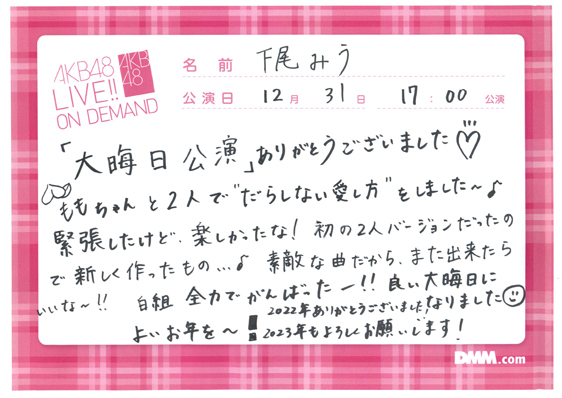 AKB48
LIVE!!
ON DEMAND
AKB
48
名前 下尾みう
公演日 12月 31日 17:00 公演
「大晦日公演」ありがとうございました♡
ももちゃんと2人で"だらしない愛し方"をしました〜♪
緊張したけど、楽しかったな! 初の2人バージョンだったの
で新しく作ったもの...♪ 素敵な曲だから、また出来たら
いいな〜!! 白組 全力でがんばったー!! 良い大晦日に
なりました☺
よいお年を〜! 2022年ありがとうございました!
2023年もよろしくお願いします!
DMM.com